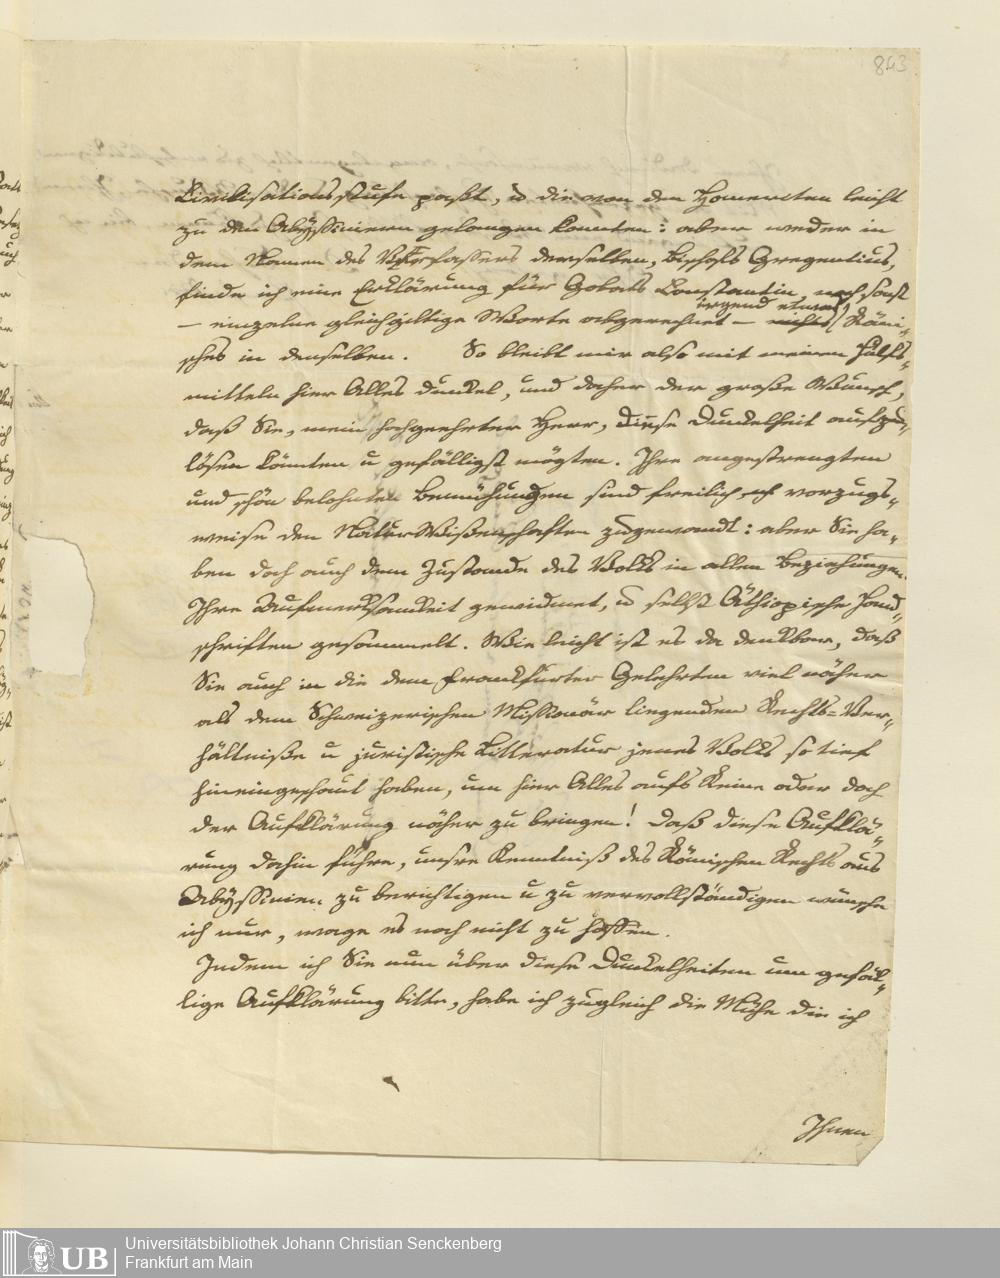 843
Civilisationsstufe paßt, u die von den Homeriten leicht
zu den Abyssiniern gelangen konnten: aber weder in
dem Namen des Verfassers derselben, Bischofs Gregentius,
finde ich eine Erklärung für Gobats Constantin, noch sonst
— einzelne gleichgiltige Worte abgerechnet — nichts irgend etwas Römi-
sches in denselben. So bleibt mir also mit meinen Hülfs-
mitteln hier Alles dunkel, und daher der große Wunsch,
daß Sie, mein hochgeehrter Herr, diese Dunkelheit aufzu-
lösen könnten u gefälligst mögten. Ihre angestrengten
und schön belohnten Bemühungen sind freilich vorzugs-
weise den NaturWißenschaften zugewandt: aber Sie ha-
ben doch auch dem Zustande des Volks in allen Beziehungen
Ihre Aufmerksamkeit gewidmet, u selbst Äthiopische Hand-
schriften gesammelt. Wie leicht ist es da denkbar, daß
Sie auch in die dem Frankfurter Gelehrten viel näher
als dem Schweizerischen Missionär liegenden Rechts-Ver-
hältniße u juristische Litteratur jenes Volks so tief
hineingeschaut haben, um hier Alles aufs Reine oder doch
der Aufklärung näher zu bringen! Daß diese Aufklä-
rung dahin führe, unsre Kenntniß des Römischen Rechts aus
Abyssinien zu berichtigen u zu vervollständigen wünsche
ich nur, wage es noch nicht zu hoffen.
Indem ich Sie nun über diese Dunkelheiten um gefäl-
lige Aufklärung bitte, habe ich zugleich die Mühe die ich
Ihnen
UB
Universitätsbibliothek Johann Christian Senckenberg
Frankfurt am Main